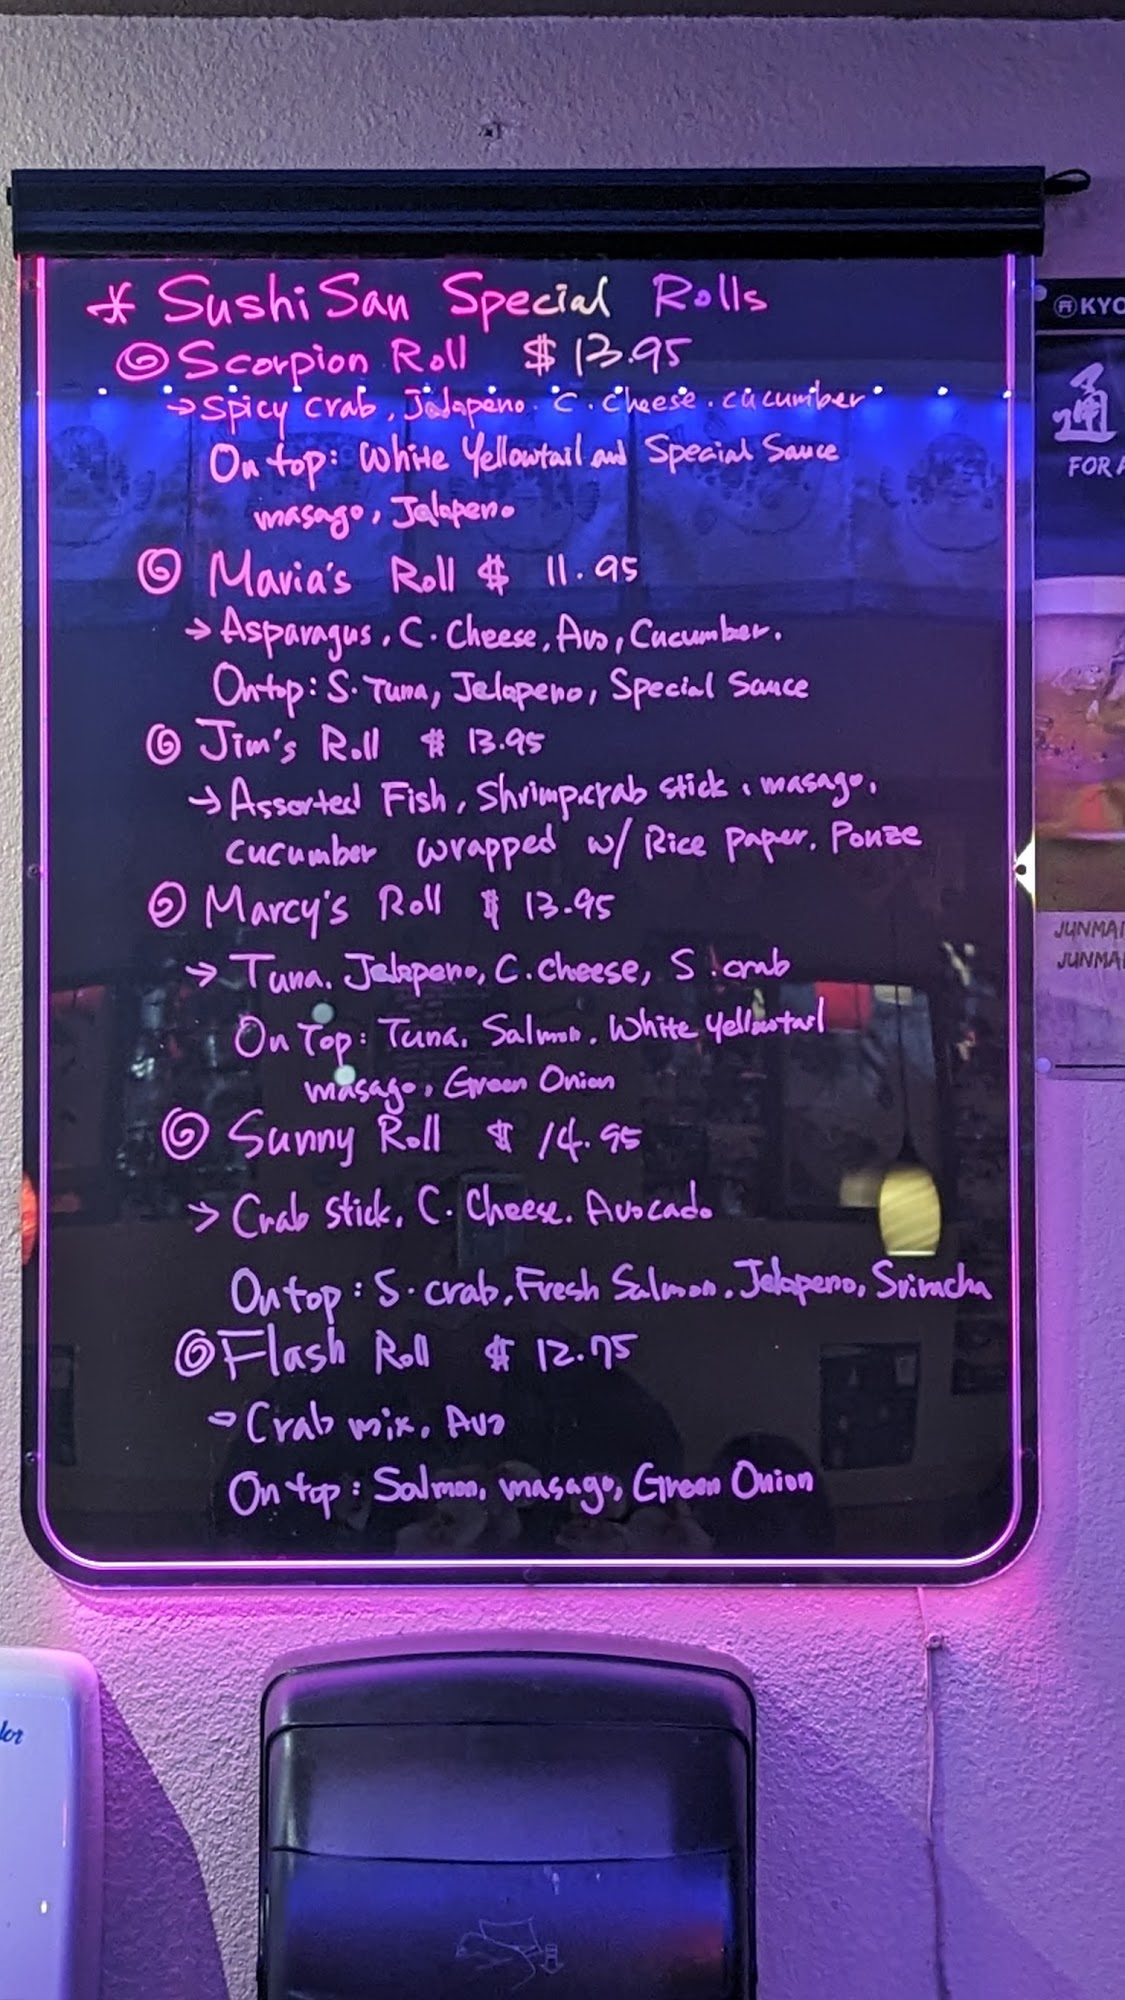 * Sushi San Special Rolls
Scorpion Roll $13.95
→ Spicy crab, Jalapeno. C. Cheese. cucumber
On top: White Yellowtail and Special Sauce
masago, Jalapeno
Maria's Roll $ 11.95
→ Asparagus, C. Cheese, Avo, Cucumber.
On top: S. Tuna, Jelapeno, Special Sauce
Jim's Roll $ 13.95
→ Assorted Fish, Shrimp, crab stick, masago,
cucumber wrapped w/ Rice paper. Ponze
Marcy's Roll $ 13.95
→ Tuna. Jelapeno, C. cheese, S. crab
On Top: Tuna. Salmon. White Yellowtail
masago, Green Onion
Sunny Roll $ 14.95
→ Crab stick, C. Cheese. Avocado
On top: S. crab, Fresh Salmon. Jelapeno, Sriracha
Flash Roll $ 12.75
→ Crab mix. Avo
On top: Salmon, masago, Green Onion
KYO
通
FOR A
JUNMAI
JUNMA